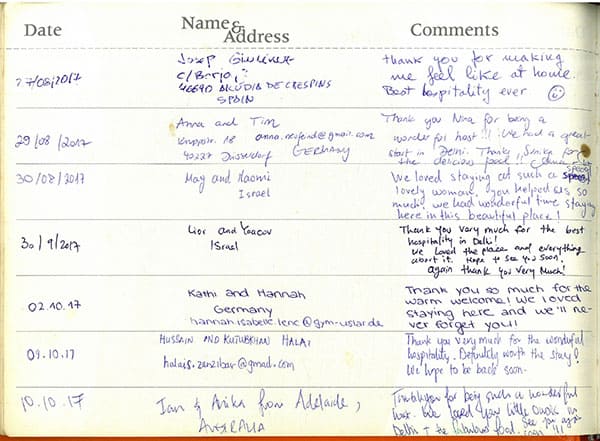 Date Name & Address Comments
27/08/2017
Josep
c/
46690 ALCUDIA DE CRESPINS
SPAIN
thank you for making
me feel like at home.
Best hospitality ever
29/08/2017
Anna and Tim
18
40227 Düsseldorf GERMANY
Thank you Nina for being a
wonderful host!! We had a great
start in Delhi. Thanks, for
the delicious food!!
30/08/2017
May and Naomi
Israel
We loved staying at such a special
lovely woman. you helped us so
much! we had wonderful time staying
here in this beautiful place!
30/9/2017
Lior and Yaacov
ISrael
Thank you vary much for the best
hospitality in Delhi!
we Loved the place and everything
about it. Hope to see you soon.
again thank you very Much!
02.10.17
Kathi and Hannah
Germany
Thank you so much for the
warm welcome! We loved
staying here and we'll ne-
ver forget you!!
09.10.17
HUSSAIN AND KUTUBKHAN HALAI
halais.zanzibar@gmail.com
Thank you very much for the wonderful
hospitality. Definitely worth the stay!
We hope to be back soon.
10.10.17
Ian & from Adelaide,
AUSTRALIA
for being such a wonderful
host. We loved your little in
Delhi & the fabulous food. See you again
soon!!